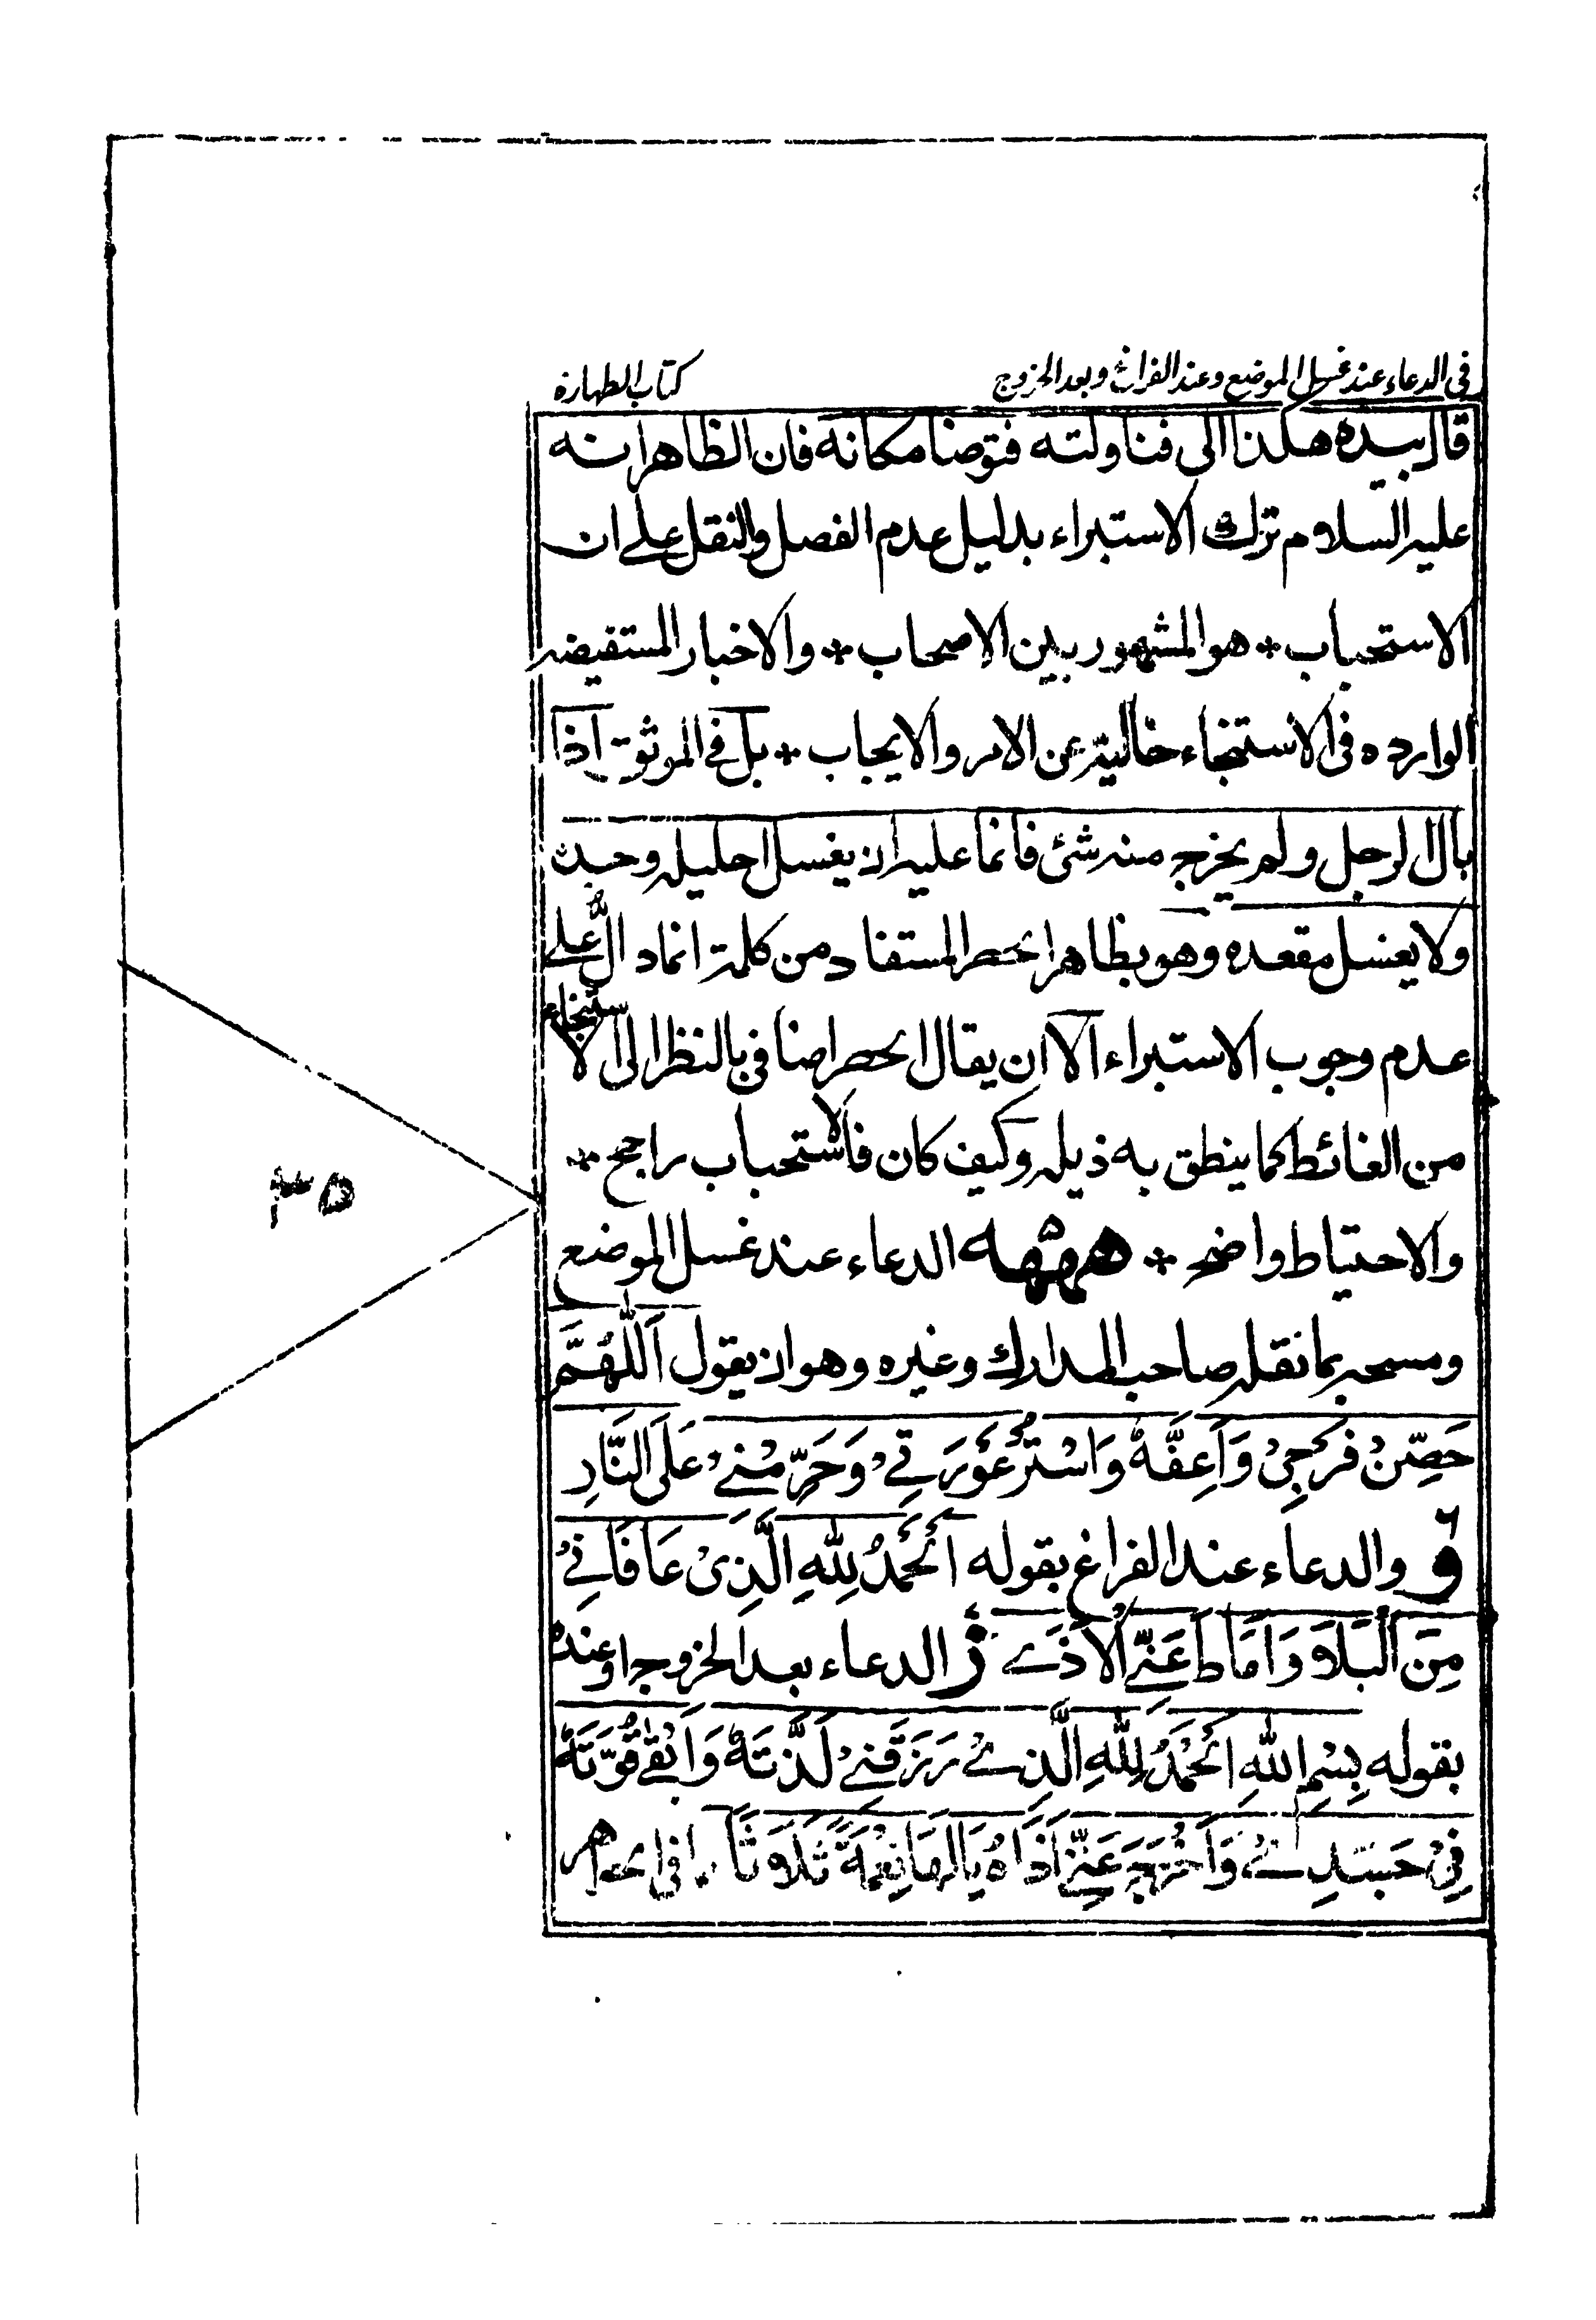 في الدعاء عند غسل الموضع وعند الفراغ وبعد الخروج
كتاب الطهارة
قال بيده هكذا الى فناولته فتوضا مكانه فان الظاهر انه
عليه السلام ترك الاستبراء بدليل عدم الفصل والنقل على ان
الاستحباب * هو المشهور بين الاصحاب * والاخبار المستفيضه
الوارده في الاستنجاء خالية عن الامر والايجاب * بل في الموثوق اذا
بال الرجل ولم يخرج منه شئ فانما عليه ان يغسل احليله وحده
ولا يغسل مقعده وهو بظاهر الحصر المستفاد من كلمة انما دالٌّ على
عدم وجوب الاستبراء الا ان يقال الحصر اضافي بالنظر الى الاستنجاء
من الغائط كما ينطق به ذيله وكيف كان فالاستحباب راجح *
والاحتياط واضح * الدعاء عند غسل الموضع
ومسحه بما نقله صاحب المدارك وغيره وهو ان يقول اَللّٰهُمَّ
حَصِّنْ فَرْجِيْ وَاَعِفَّهُ وَاسْتُرْ عَوْرَتِيْ وَحَرِّمْنِيْ عَلَى النَّارِ
و والدعاء عند الفراغ بقوله اَلْحَمْدُ لِلّٰهِ الَّذِيْ عَافَانِيْ
مِنَ الْبَلَاۤءِ وَاَمَاطَ عَنِّي الْاَذَى ز الدعاء بعد الخروج او عنده
بقوله بِسْمِ اللّٰهِ اَلْحَمْدُ لِلّٰهِ الَّذِيْ رَزَقَنِيْ لَذَّتَهُ وَاَبْقٰى قُوَّتَهُ
فِيْ جَسَدِيْ وَاَخْرَجَ عَنِّيْ اَذَاهُ يَا لَهَا نِعْمَةً ثَلَاثًا
٣٥